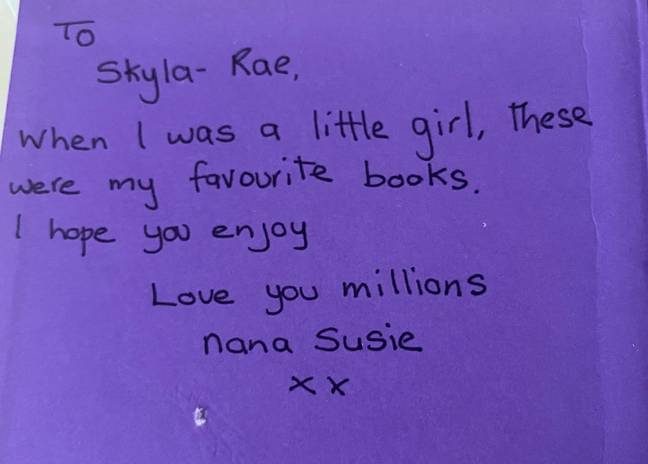 To
Skyla-Rae,
When I was a little girl, these
were my favourite books.
I hope you enjoy
Love you millions
nana Susie
x x